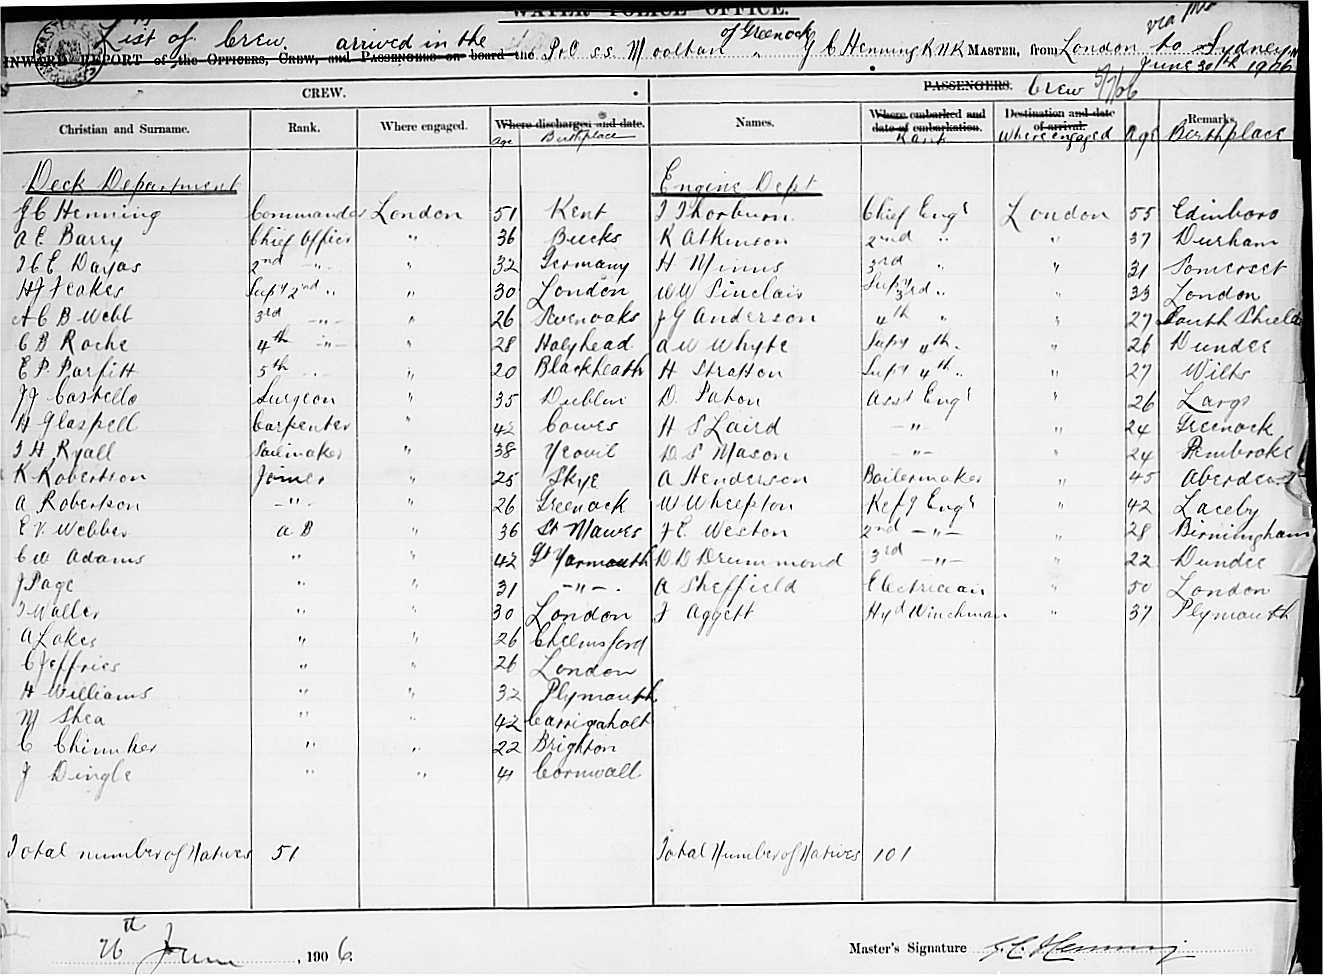 WATER POLICE OFFICE.
List of Crew arrived in the P&O S.S. Mooltan of Greenock, G C Henning RNR MASTER, from London to Sydney, via
INWARD REPORT of the OFFICERS, CREW, and PASSENGERS on board the
June 30th 1906
CREW. PASSENGERS. Crew 5/7/06
Christian and Surname. Rank. Where engaged. Where discharged and date. Names. Where embarked and date of embarkation. Destination and date of arrival. Age Remarks.
Age Birthplace Rank Where engaged Birthplace
Deck Department Engine Dept
G C Henning Commander London 51 Kent T Thorburn Chief Engr London 55 Edinboro
A E Barry Chief Officer " 36 Bucks R Atkinson 2nd " " 37 Durham
2nd " " 32 Germany H Minns 3rd " " 31 Somerset
H J Feakes Supy 2nd " " 30 London W W Sinclair Supy 3rd " " 33 London
A C B Webb 3rd " " 26 Sevenoaks J G Anderson 4th " " 27 South Shields
C B Roche 4th " " 28 Holyhead A W Whyte Supy 4th " " 26 Dundee
E P Parfitt 5th " " 20 Blackheath H Stratton Supy 4th " " 27 Wilts
J J Costello Surgeon " 35 Dublin D Paton Asst Engr " 26 Largs
H Glaspell Carpenter " 42 Cowes H S Laird " " 24 Greenock
T H Ryall Sailmaker " 38 Yeovil D S Mason " " 24 Pembroke
K Robertson Joiner " 25 Skye A Henderson Boilermaker " 45 Aberdeen
A Robertson " " 26 Greenock W Wheepton Refg Engr " 42 Laceby
E V Webber A B " 36 St Mawes J E Weston 2nd " " 28 Birmingham
C W Adams " " 42 Gt Yarmouth D D Drummond 3rd " " 22 Dundee
J Page " " 31 " A Sheffield Electrician " 50 London
T Waller " " 30 London J Aggett Hyd Winchman " 37 Plymouth
A Lakes " " 26 Chelmsford
C Jeffries " " 26 London
H Williams " " 32 Plymouth
M Shea " " 42 Carrigaholt
C " " 22 Brighton
J Dingle " " 41 Cornwall
Total number of Natives 51 Total Number of Natives 101
26th June, 1906. Master's Signature G. C. Henning